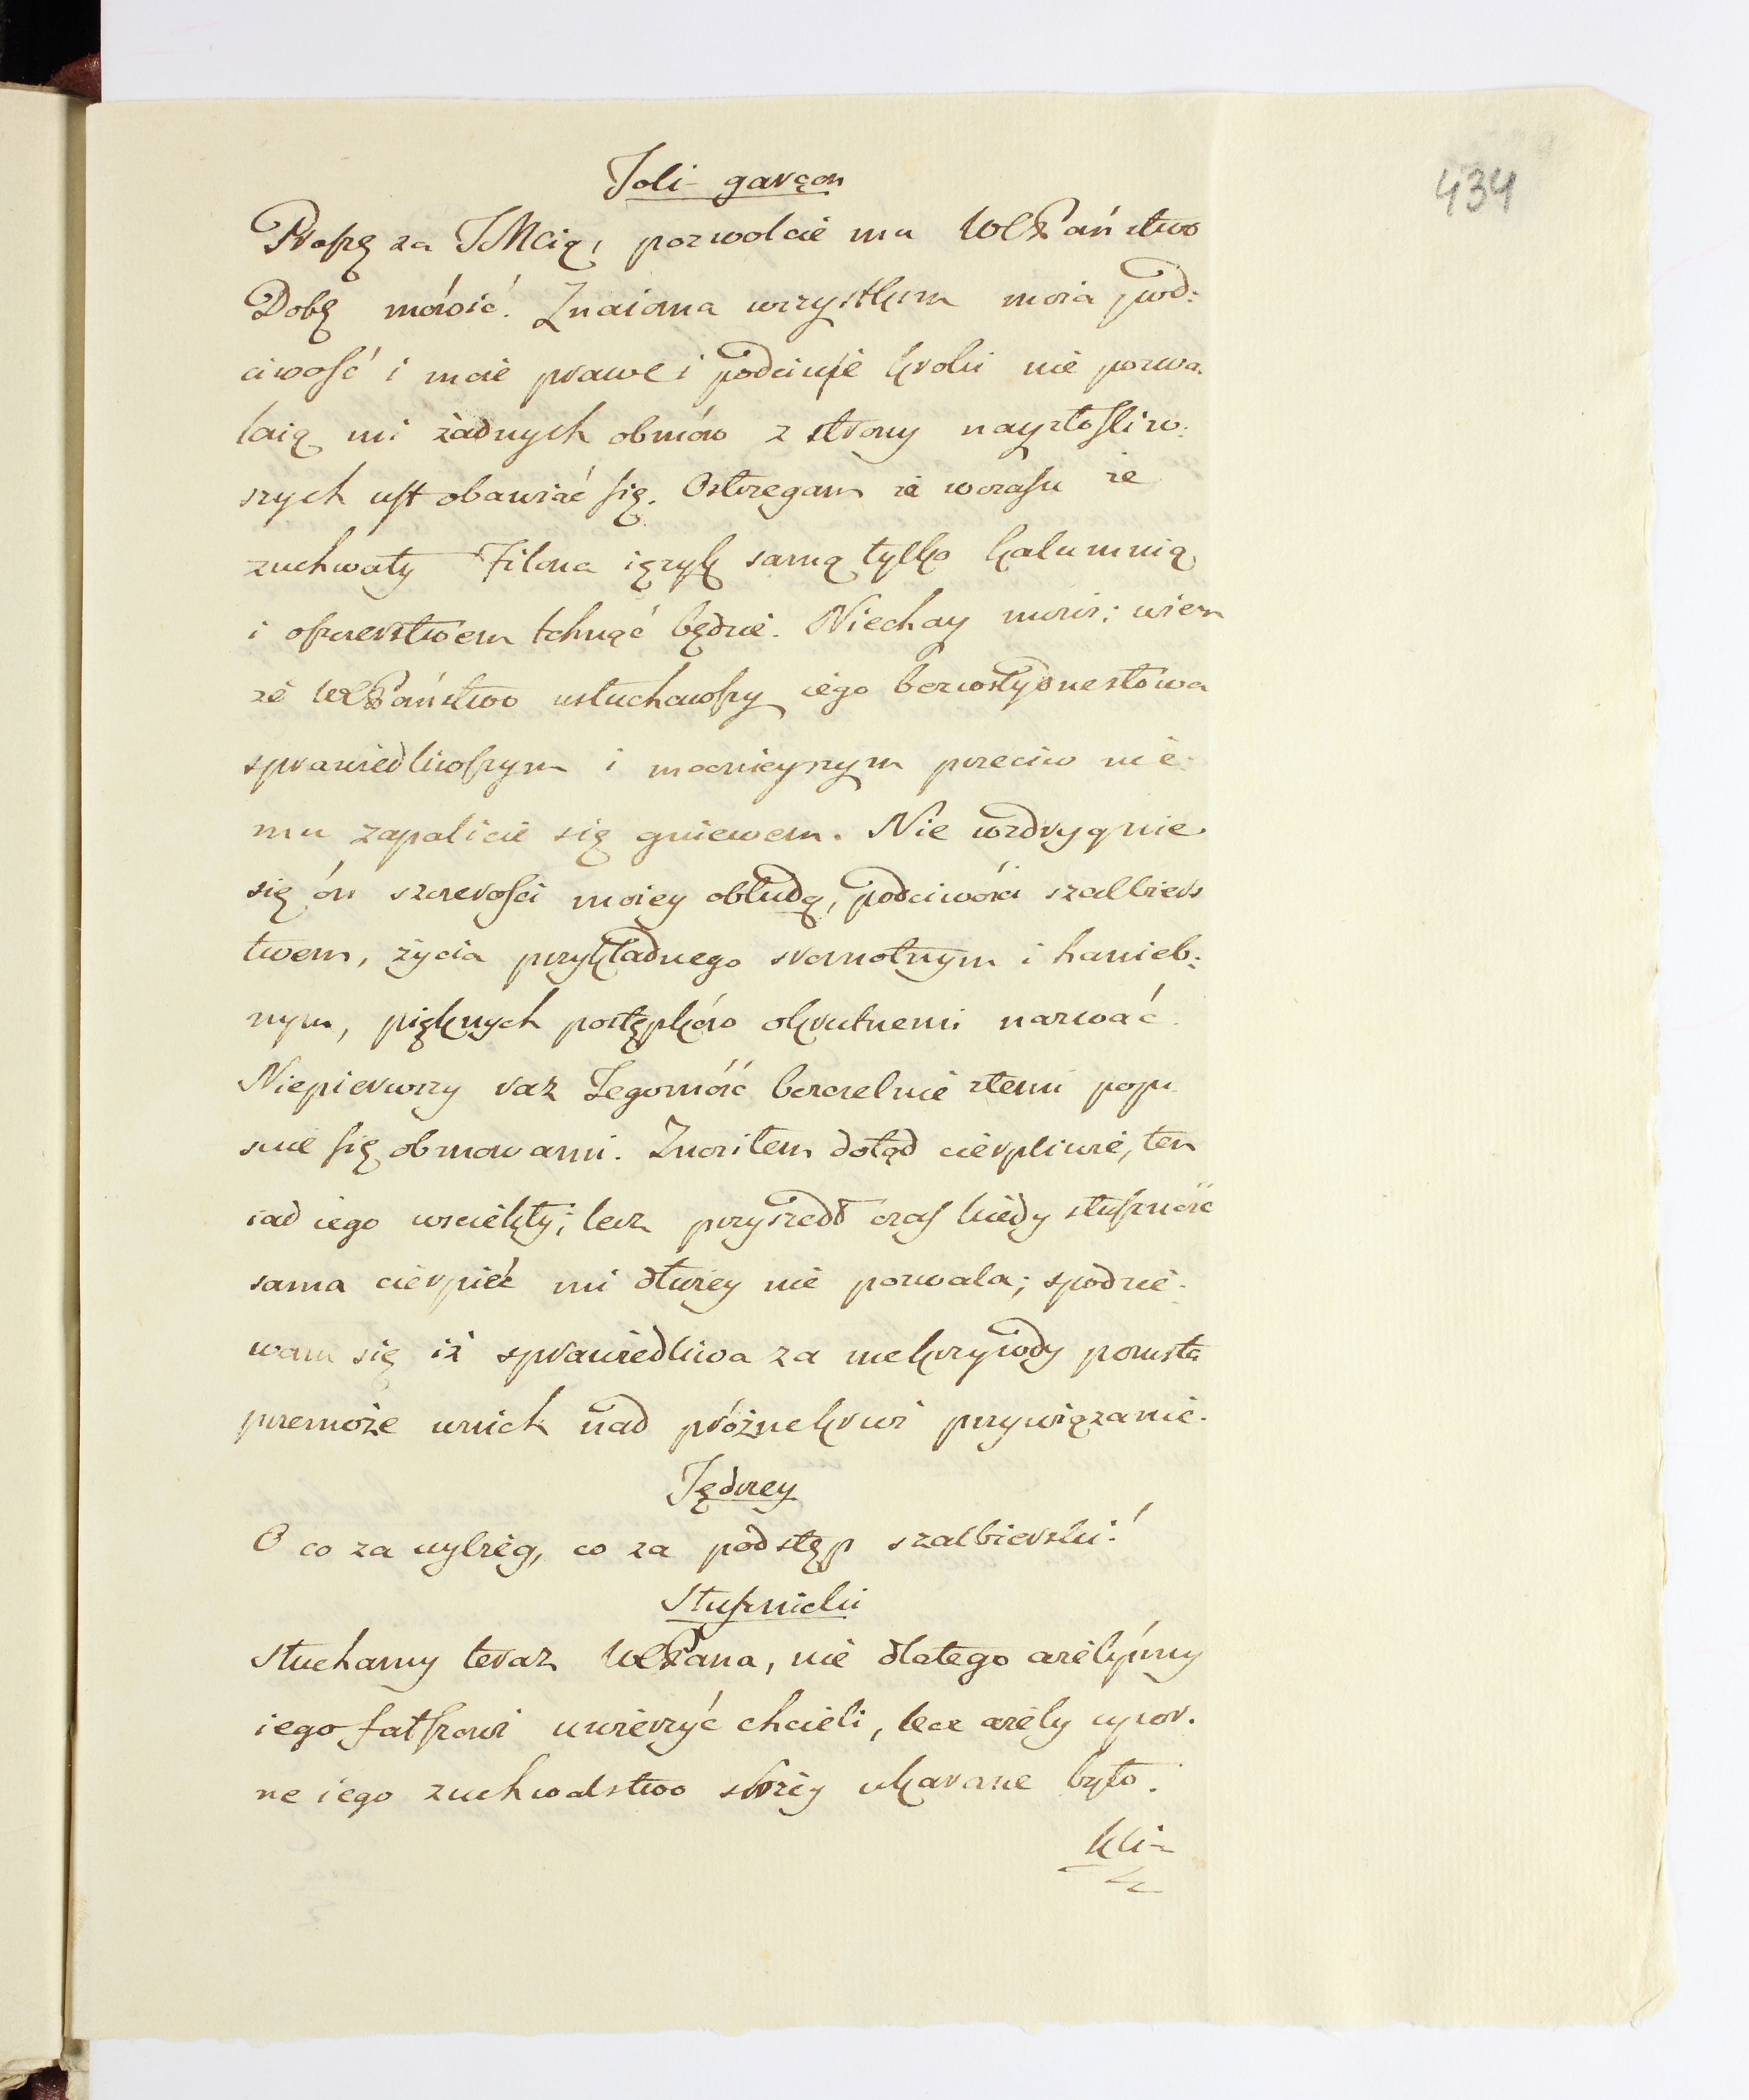 434
Joli-garçon
Proszę za JMcią, pozwolcie mu WPaństwo
Dobę mówić. Znaioma wszystkim moia pod:
ciwość i moie prawe i podciwe kroki nie pozwa:
laią mi żadnych obmów z strony nayzłośliw:
szych ust obawiać się. Ostrzegam że wczasu że
zuchwały Filona ięzyk samą tylko kalumnią
i oszczerstwem tchnąć będzie. Niechay mowi; wiem
że WPaństwo usłuchawszy iego bezwstydne słowa
sprawiedliwszym i mocnieyszym przeciw nie:
mu zapalicie się gniewem. Nie wzdrygnie
się ón szczerości moiey obłudą, podciwości szalbiers
twem, życia przykładnego sromotnym i hanieb:
nym, pięknych postępków okrutnemi nazwać.
Niepierwszy raz Jegomość bezczelnie złemi popi
suie się obmowami. Znosiłem dotąd cierpliwie, ten
iad iego wściekły; lecz przyszedł czas kiedy słuszność
sama cierpieć mi dłużey nie pozwala; spodzie:
wam się iż sprawiedliwa za me krzywdy pomsta
przemoże wnich nad próżne krwi przywiązanie.
Jędrzey
O co za wybieg, co za podstęp szalbierski!
Słusznicki
Słuchamy teraz WPana, nie dlatego ażebyśmy
iego fałszowi uwierzyć chcieli, lecz ażeby upor:
ne iego zuchwalstwo srożey ukarane było.
Kli-